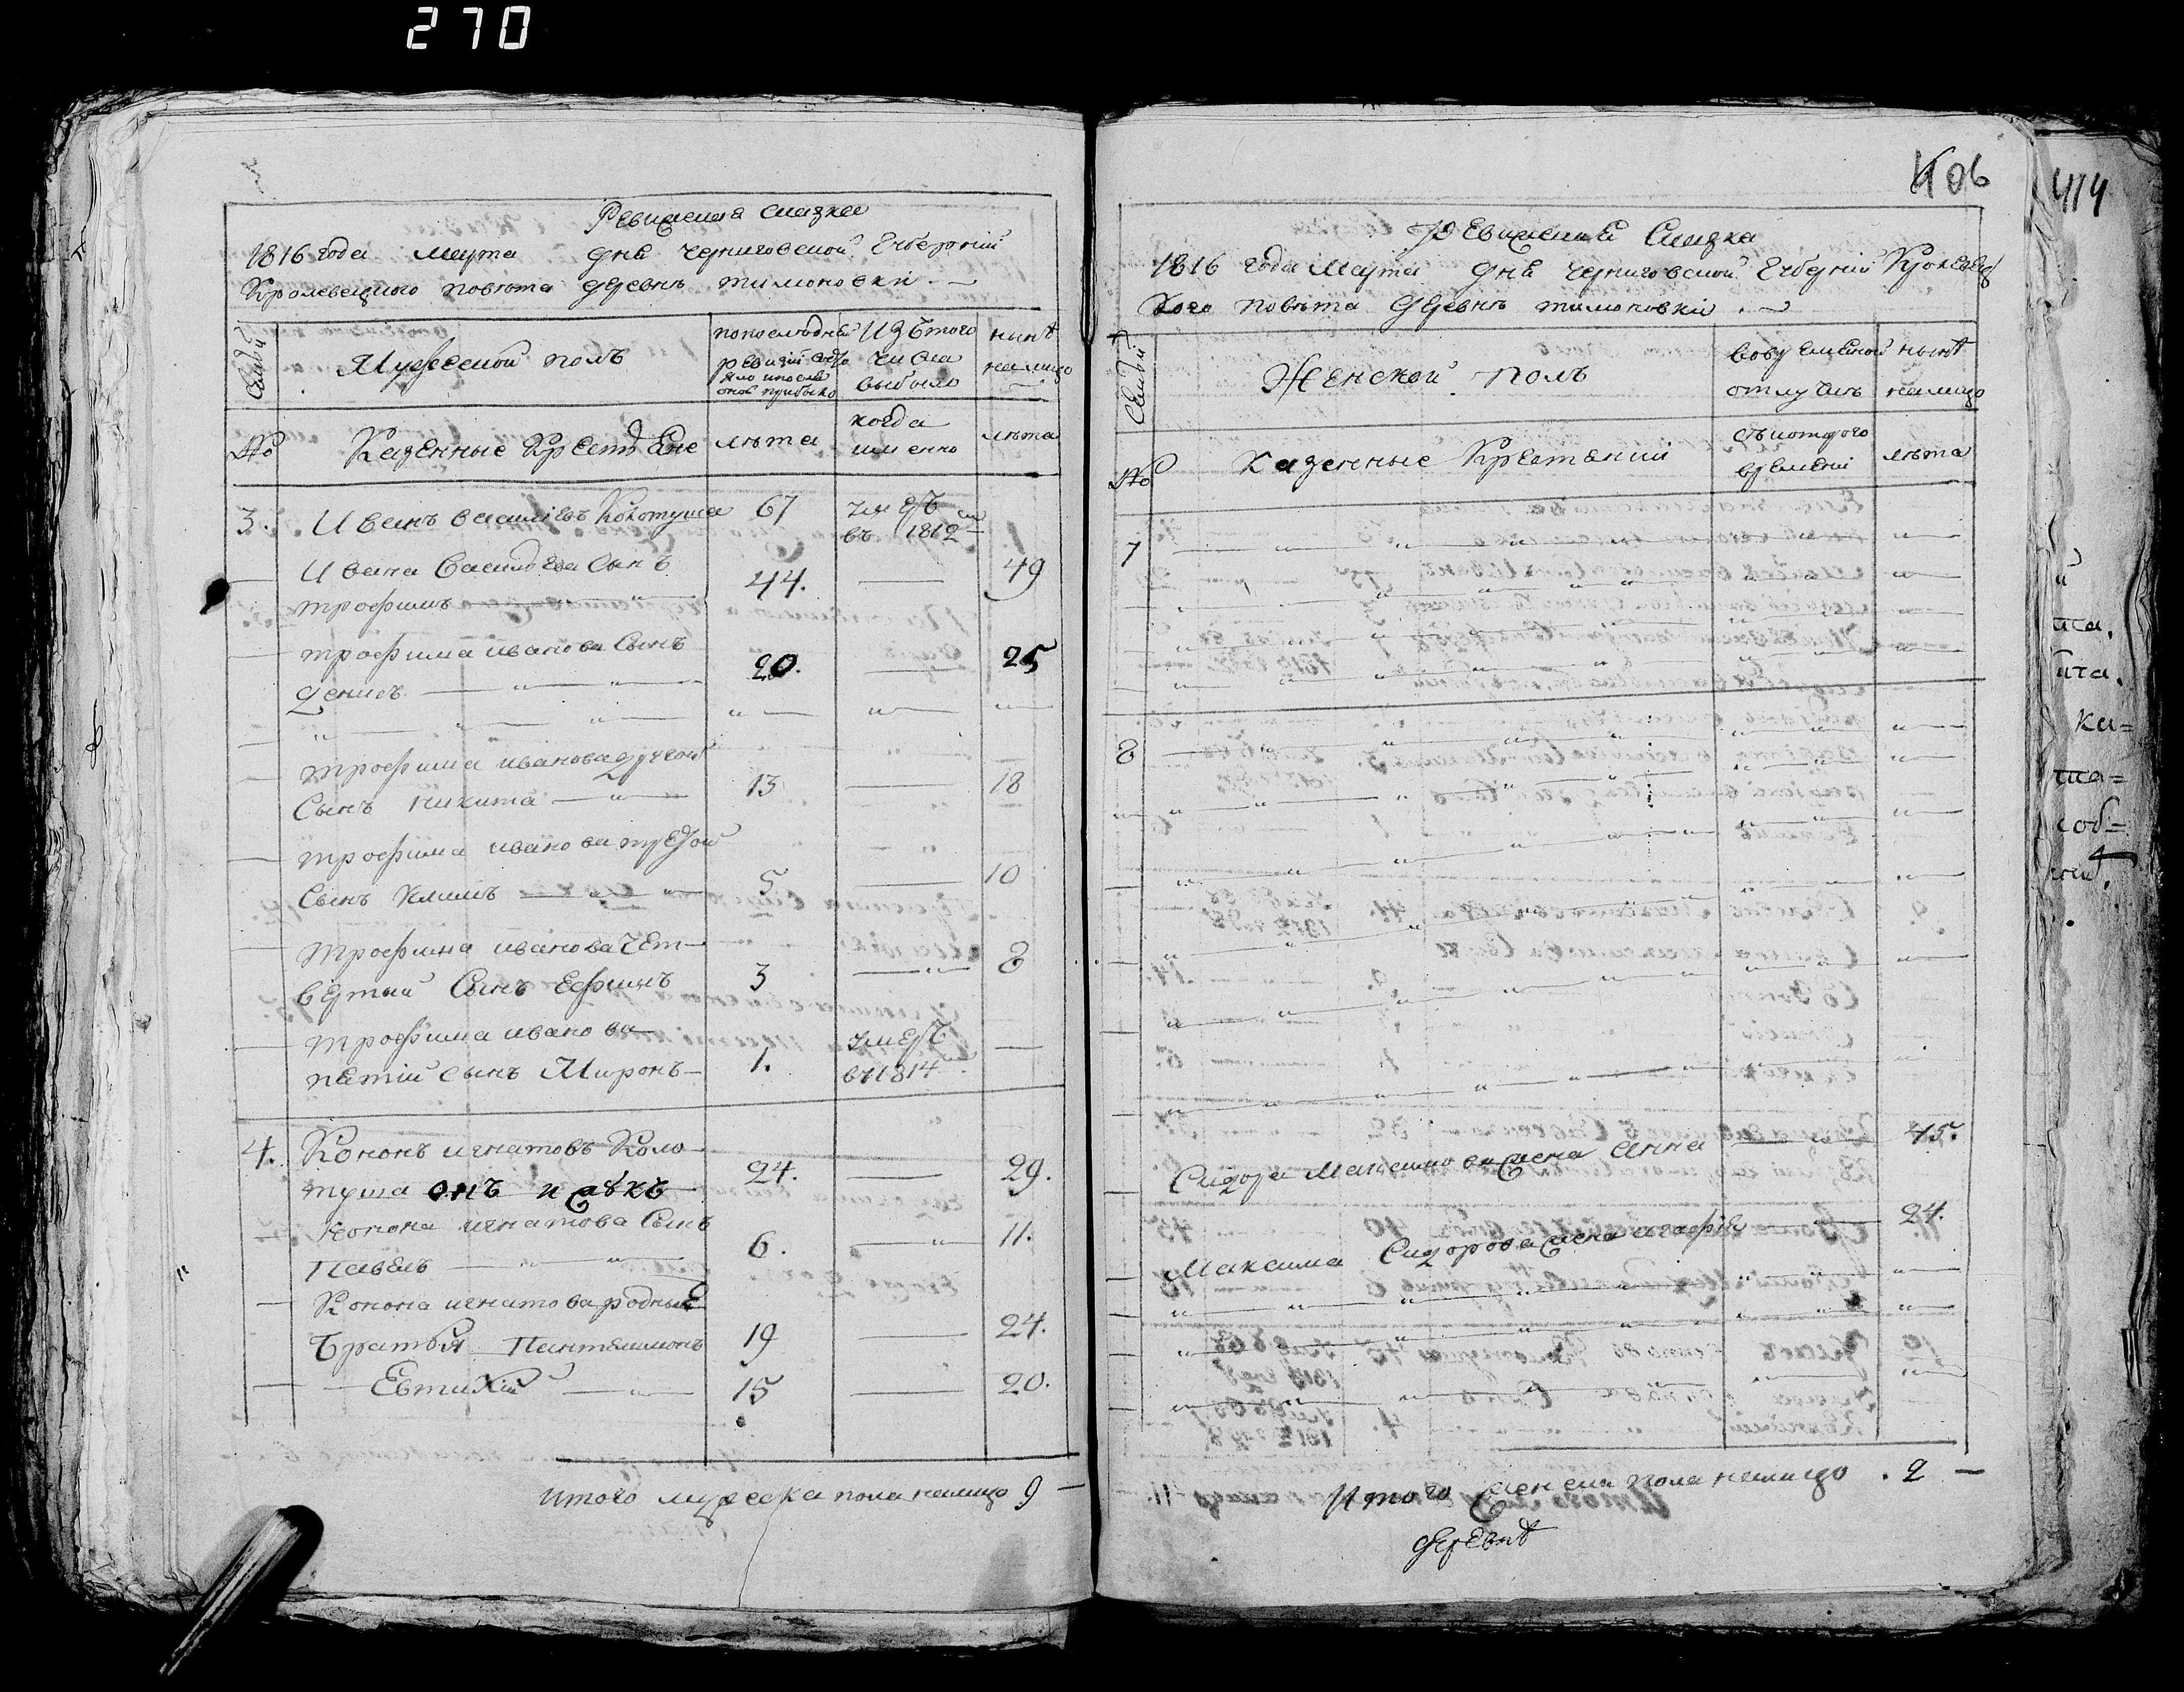 270
Ревижская сказка
1816 года Марта дня Черниговской Губерний
Кролевецкого повета деревнѣ тимоновки
Семьи
Мужеской полъ
попоследней
ревизий состо
яло и после
оной прибыло
Изъ того
числа
выбыло
нынѣ
налицо
№
Казенные Крестьяне
лѣта
когда
именно
лѣта
3. Иванъ васильевъ Колотуша 67 умеръ
въ 1812м
Ивана Васильева Сынъ
трофимъ 44. 49
трофима иванова Сынъ
денисъ 20. 25
трофима иванова другой
Сынъ никита 13 18
трофима иванова третой
Сынъ Климъ 5 10
трофима иванова чет-
вертый Сынъ Ефимъ 3 8
трофима иванова
петій сынъ Миронъ 1. умеръ
в 1814
4. Кононъ игнатовъ Коло-
туша онъ и 24. 29.
Конона игнатова Сынъ
Павелъ 6. 11.
Конона игнатова родные
братья Пантелимонъ 19 24.
Евтихій 15 20.
Итого мужеска пола налицо 9
406
Ревижская Сказка
1816 года Марта дня Черниговской Губерний Кролевец
кого повѣта деревнѣ тимоновки
Семьи
Женской полъ
вовременной
отлучкѣ
нынѣ
налицо
№
Казенные Крестяний
съ которого
времени
лѣта
7
8
Сидора Максимова жена Анна 45.
Максима Сидорова жена агафія 24.
Итого женска пола налицо 2
деревнѣ
414
й
ка=